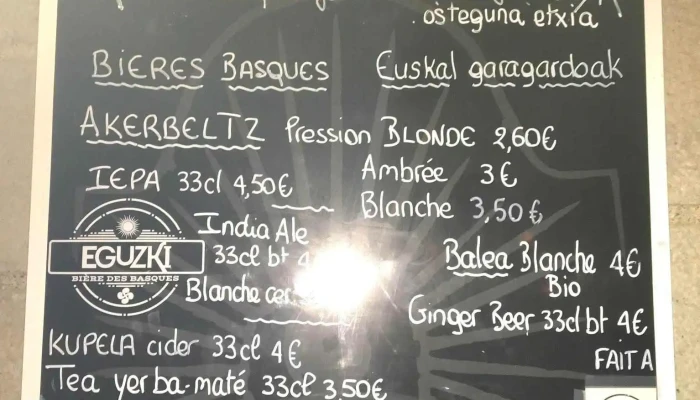 osteguna etxia
BIERES BASQUES Euskal garagardoak
AKERBELTZ Pression BLONDE 2,60€
Ambrée 3€
Blanche 3,50€
IEPA 33cl 4,50€
EGUZKI
BIÈRE DES BASQUES
India Ale
33cl bt 4
Blanche
Balea Blanche 4€
Bio
Ginger Beer 33cl bt 4€
FAIT A
KUPELA cider 33cl 4€
Tea yerba-maté 33cl 3,50€